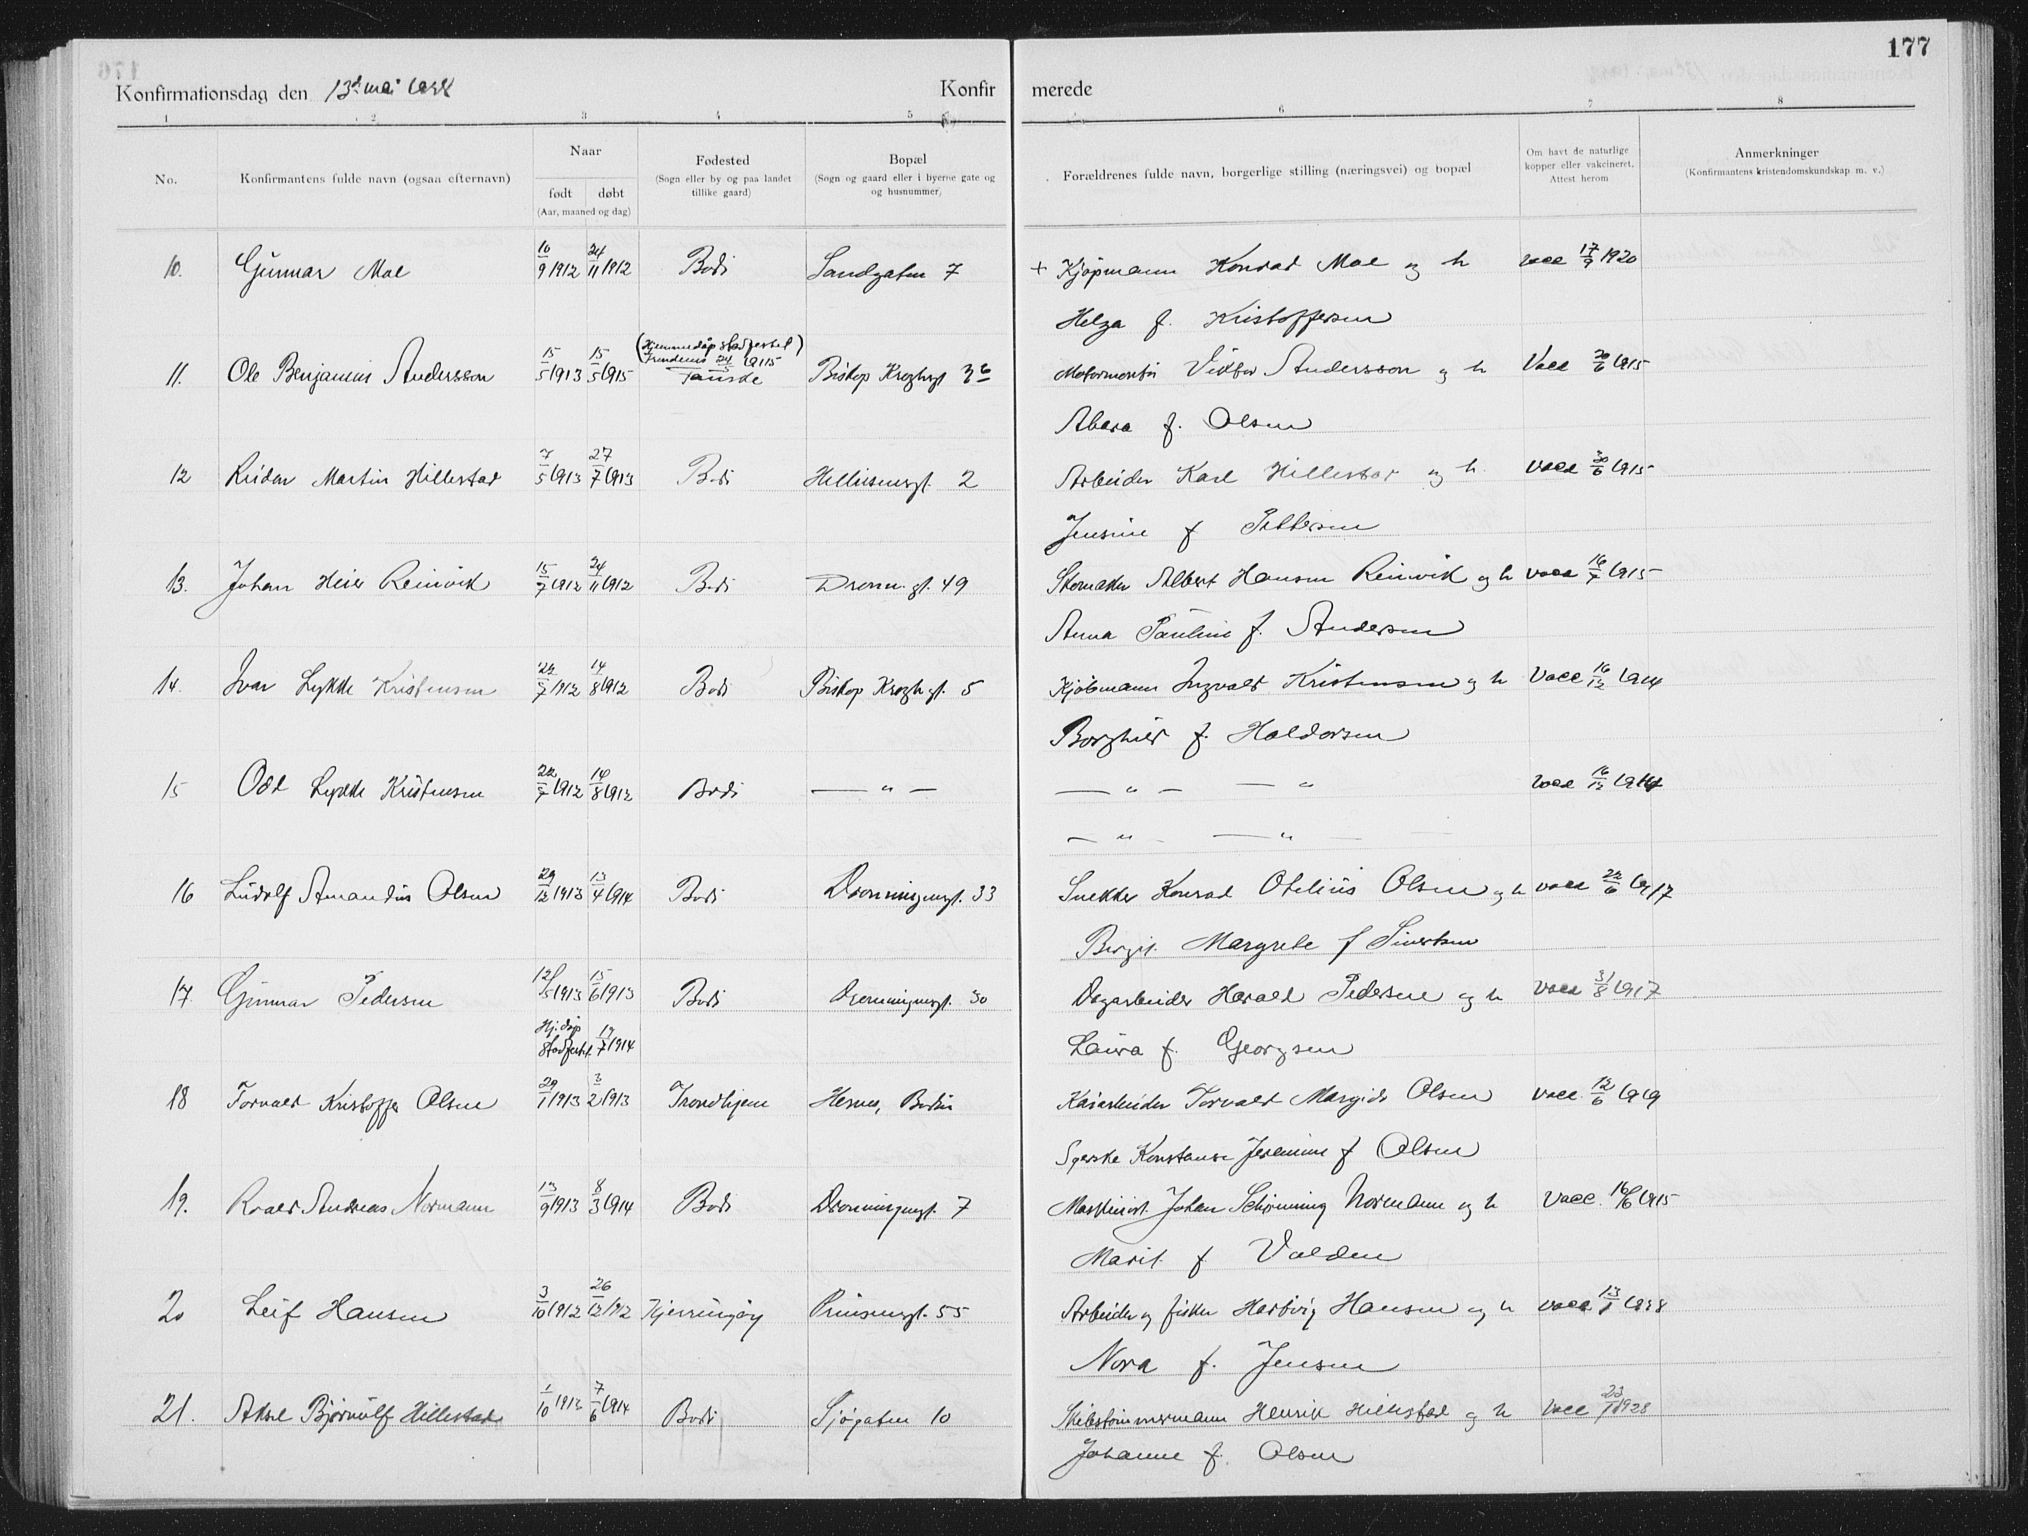 177
Konfirmationsdag den 13de mai 1928
Konfir merede
1 2 3 4 5 6 7 8
No.
Konfirmantens fulde navn (ogsaa efternavn)
Naar
født døbt
(Aar, maaned og dag)
Fødested
(Sogn eller by og paa landet
tillike gaard)
Bopæl
(Sogn og gaard eller i byerne gate og
og husnummer)
Forældrenes fulde navn, borgerlige stilling (næringsvei) og bopæl
Om havt de naturlige
kopper eller vakcineret.
Attest herom
Anmerkninger
(Konfirmantens kristendomskundskap m. v.)
10. Gunnar Moe 10/9 1912 24/11 1912 Bodø Sandgaten 7 + Kjøpmann Konrad Moe og h vacc 17/9 1920
Helga f. Kristoffersen
(Hjemmedåp stadfestet
24/5 1915)
11. Ole Benjamin Andersson 15/5 1913 15/5 1915 Fauske Biskop Kroghsgt 36 Motormontør Viktor Andersson og h Vacc 20/6 1915
f. Olsen
12 Reidar Martin Hillestad 7/5 1913 27/7 1913 Bodø 2 Arbeider Karl Hillestad og h. vacc 30/6 1915
Jensine f Pettersen
13. Johan Heier Reinvik 15/7 1912 24/11 1912 Bodø Dronn. gt. 49 Skomaker Albert Hansen Reinvik og h vacc 16/7 1915
Anna Pauline f. Andersen
14. Ivar Lykke Kristensen 22/7 1912 14/8 1912 Bodø Biskop Krogh gt. 5 Kjøbmann Ingvald Kristensen og h Vacc 16/12 1914
Borghild f. Haldorsen
15 Odd Lykke Kristensen 22/7 1912 14/8 1912 Bodø — " — — " — — " vacc 16/12 1914
— " — — " —
16 Ludolf Amandus Olsen 29/12 1913 13/4 1914 Bodø Dronningensgt. 33 Snekker Konrad Otelius Olsen og h vacc 22/6 1917
Bergit Margrete f Sivertsen
17 Gunnar Pedersen 12/5 1913 15/6 1913 Bodø Dronningensgt. 30 Dagarbeider Harald Pedersen og h vacc 31/8 1917
Hj. dåp
stadfestet 19/7 1914 Laura f. Georgsen
18 Torvald Kristoffer Olsen 29/1 1913 3/2 1913 Trondhjem Hernes, Bodin Kaiarbeider Torvald Olsen vacc 12/6 1919
Konstanse Jeremine f Olsen
19. Roald Andreas Normann 13/9 1913 8/3 1914 Bodø Dronningensgt. 7 Maskinist Johan Schønning Normann og h Vacc. 16/6 1915
Marit f Valden
20 Leif Hansen 3/10 1912 26/12 1912 Kjerringøy Prinsensgt. 55 Arbeider og fisker Hartvig Hansen og h vacc 13/1 1928
Nora f. Jensen
21. Aksel Bjørnulf Hillestad 1/10 1913 7/6 1914 Bodø Sjøgaten 10 Skibstømmermann Henrik Hillestad og h vacc 23/1 1928
Johanne f. Olsen